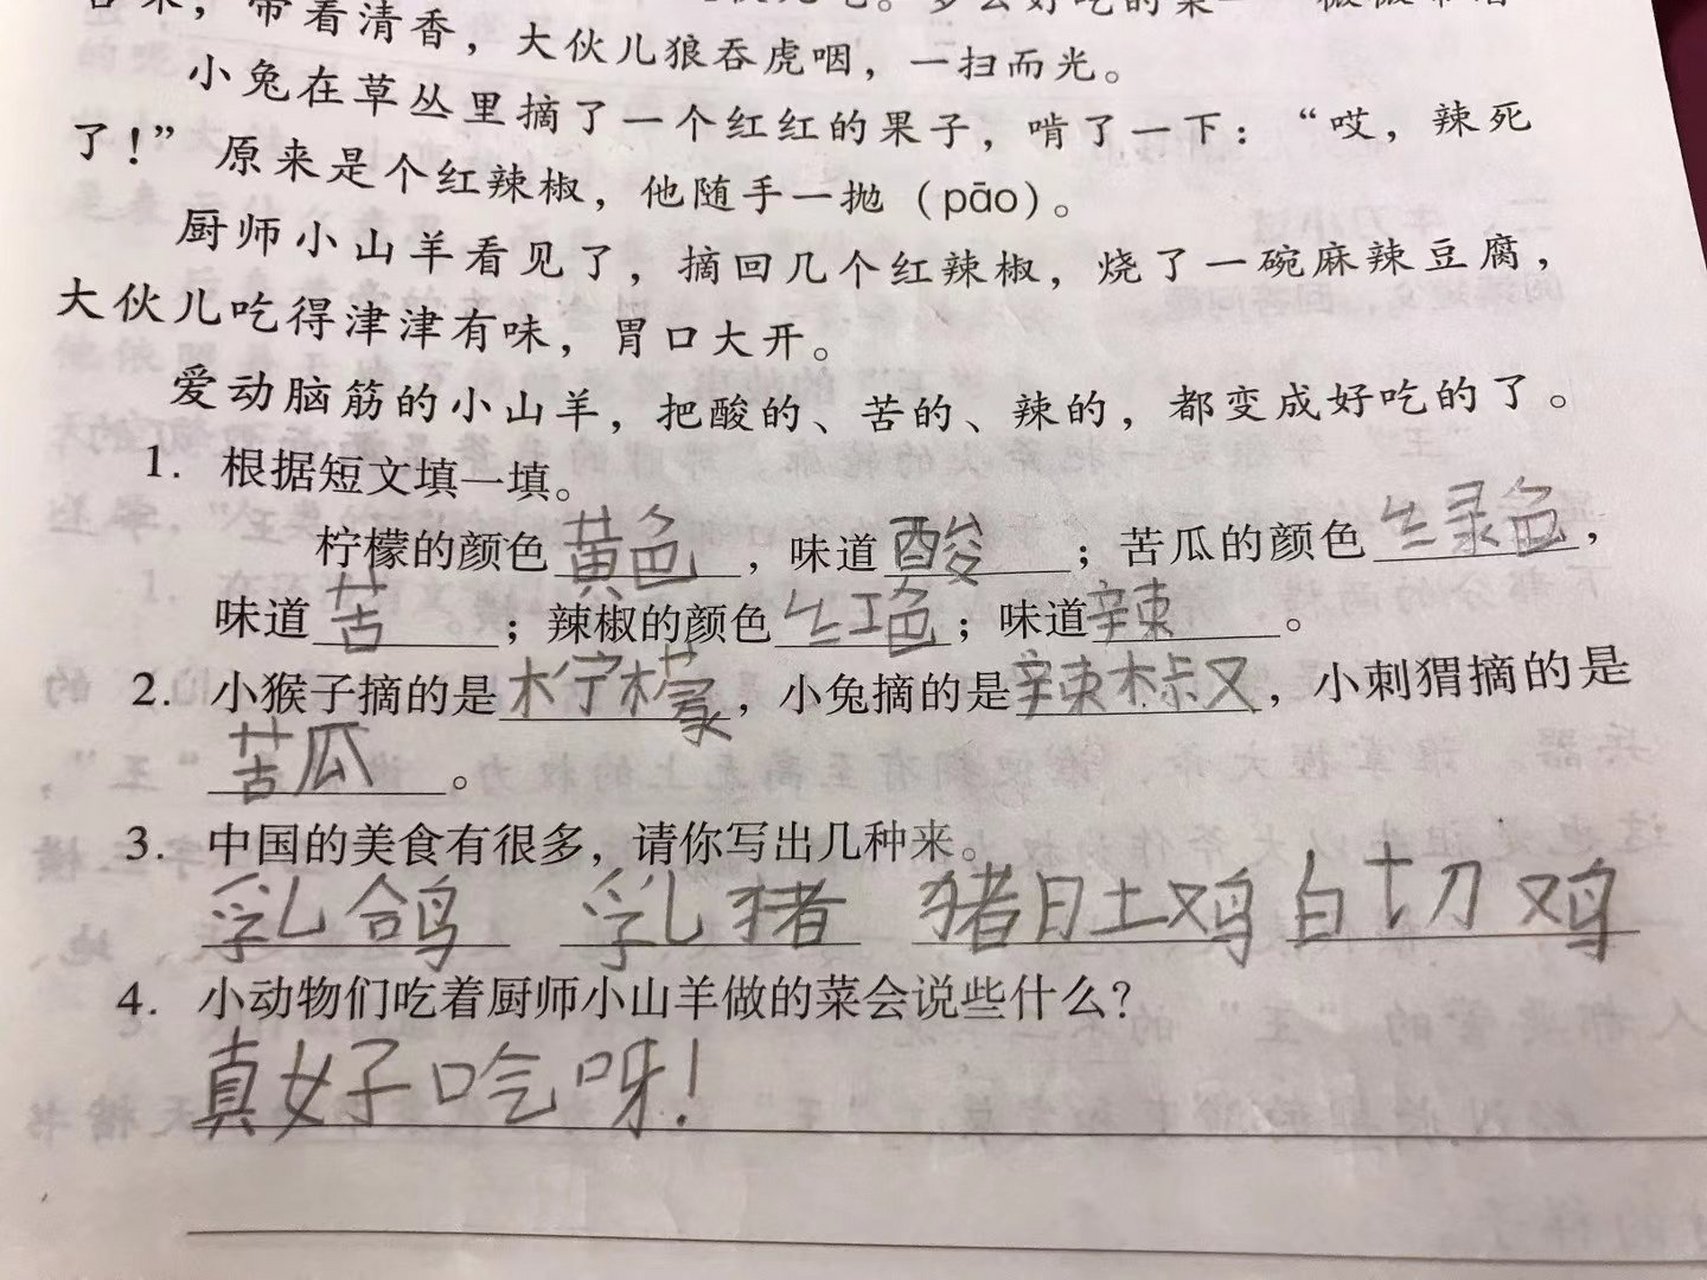 带着清香，大伙儿狼吞虎咽，一扫而光。
小兔在草丛里摘了一个红红的果子，啃了一下：“哎，辣死
了！”原来是个红辣椒，他随手一抛（pāo）。
厨师小山羊看见了，摘回几个红辣椒，烧了一碗麻辣豆腐，
大伙儿吃得津津有味，胃口大开。
爱动脑筋的小山羊，把酸的、苦的、辣的，都变成好吃的了。
1. 根据短文填一填。
柠檬的颜色黄色，味道酸；苦瓜的颜色绿色，
味道苦；辣椒的颜色红色；味道辣。
2. 小猴子摘的是柠檬，小兔摘的是辣椒，小刺猬摘的是
苦瓜。
3. 中国的美食有很多，请你写出几种来。
乳鸽 乳猪 猪肚鸡 白切鸡
4. 小动物们吃着厨师小山羊做的菜会说些什么？
真好吃呀！